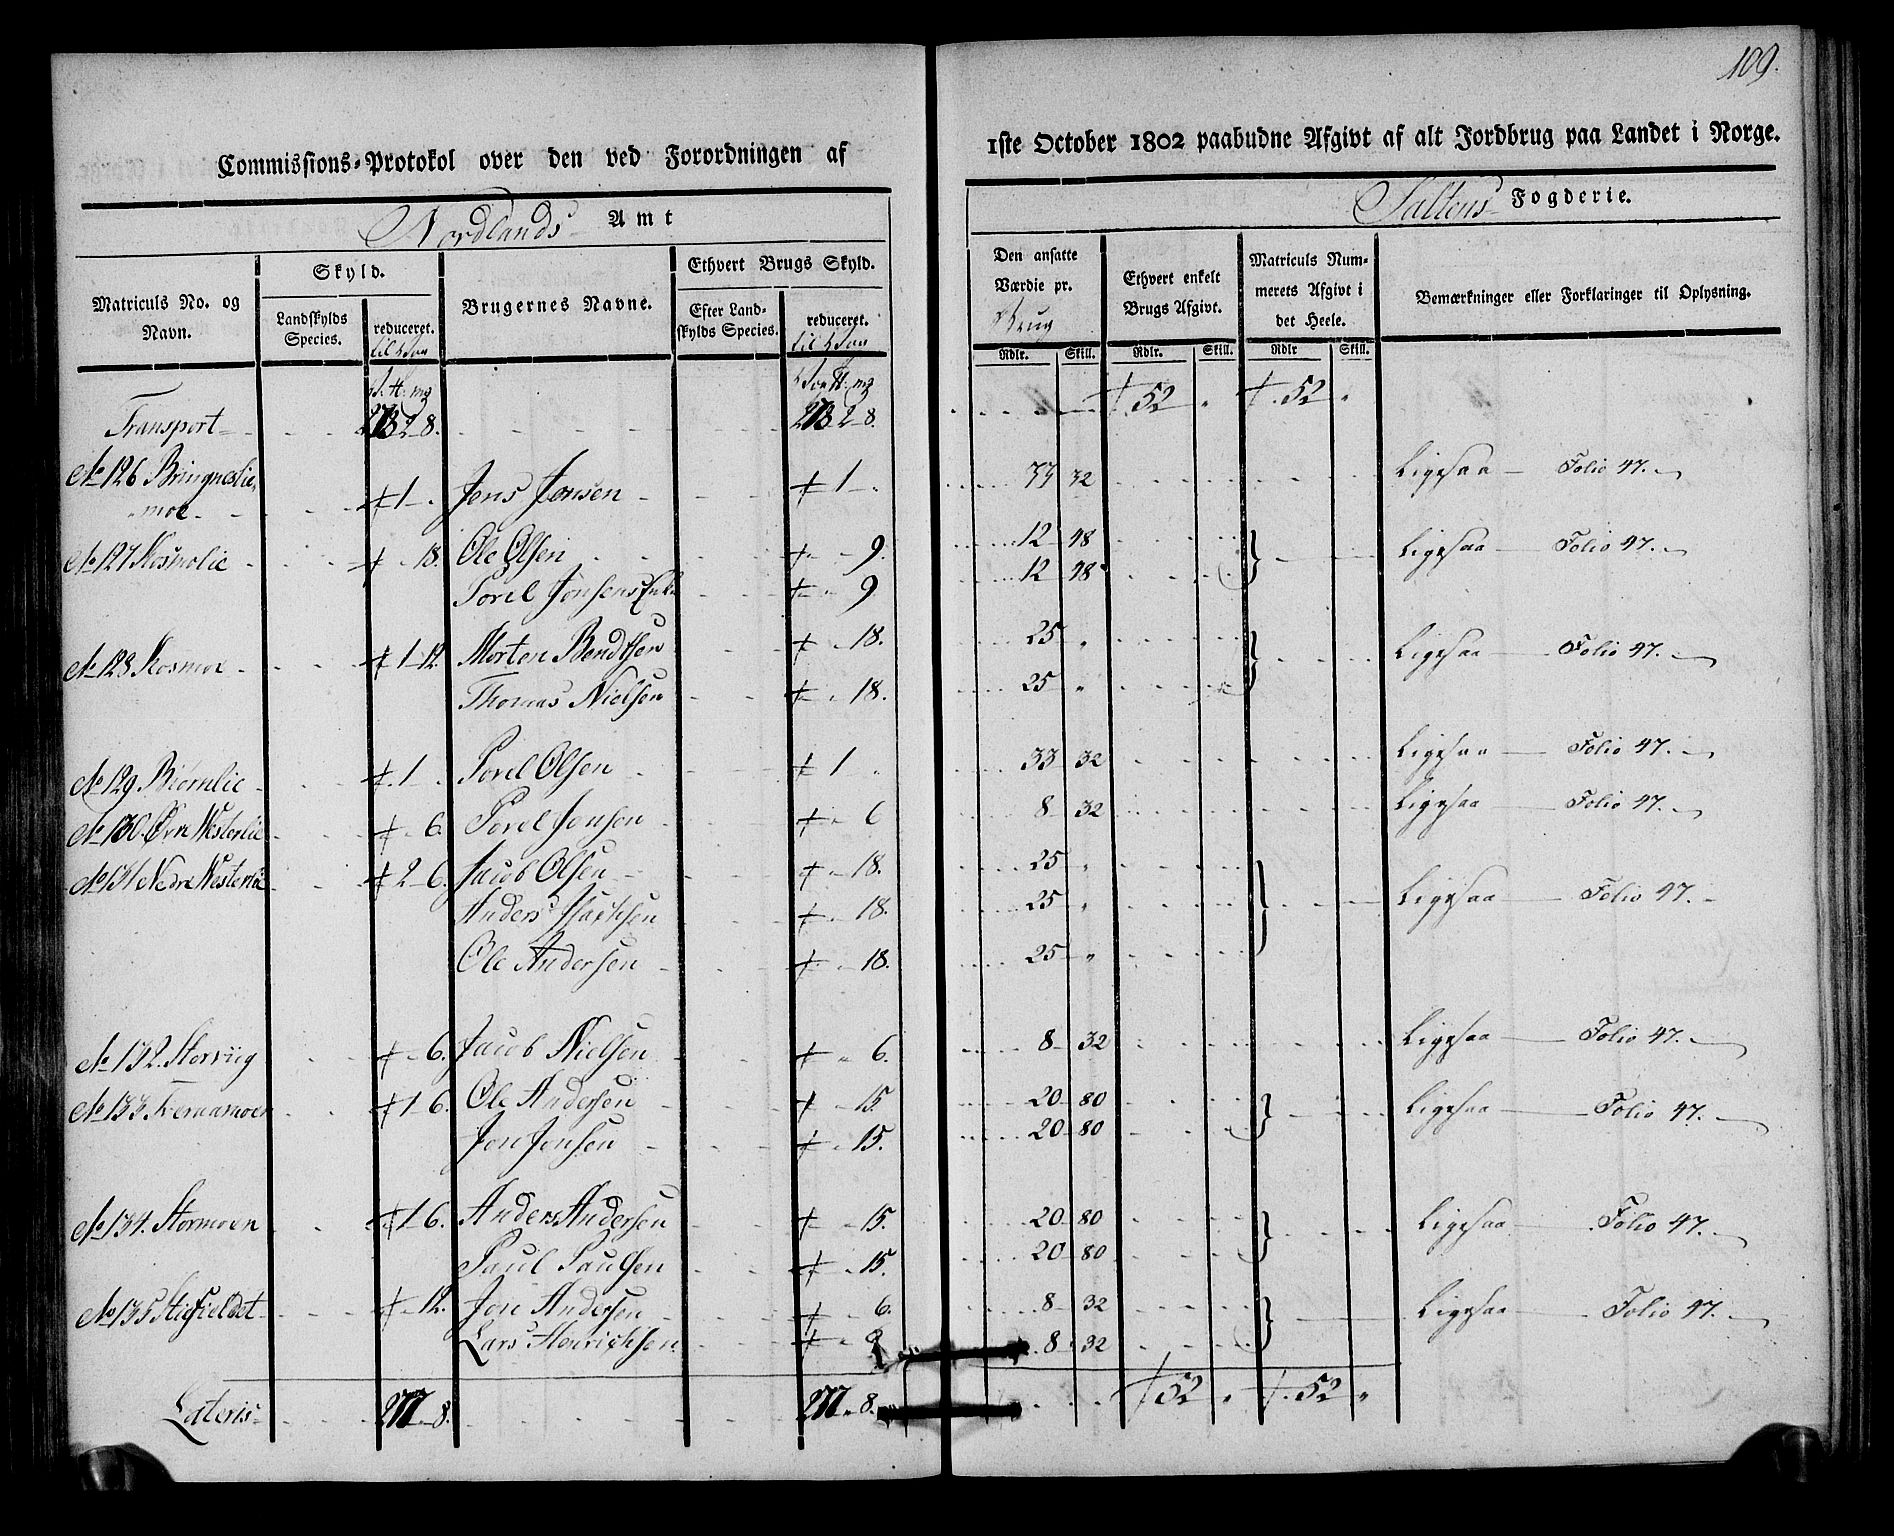 109.
Commissions-Protokol over den ved Forordningen af 1ste October 1802 paabudne Afgivt af alt Jordbrug paa Landet i Norge.
Nordlands Amt Saltens Fogderie.
Matriculs No. og Navn. Skyld. Landskylds Species. reduceret. Brugernes Navne. Ethvert Brugs Skyld. Efter Landskylds Species. reduceret. Den ansatte Værdie pr. Brug Rdlr. Skill. Ethvert enkelt Brugs Afgivt. Rdlr. Skill. Matriculs Nummerets Afgivt i det Heele. Rdlr Skill. Bemærkninger eller Forklaringer til Oplysning.
Transport 2 8. 2 8. 52 " 52 "
No 126 Bringneslie moe 1 Jens Jensen 1 33 32 Ligesaa Folio 47.
No 127 Kosmolie 18. Ole Olsen 9. 12 48 Ligesaa Folio 47.
Povel Jensens Enke 9 12 48
No 128 Kosmoe 1 12. Morten Bendtsen 18. 25 " Ligesaa Folio 47.
Thomas Nielsen 18. 25 "
No 129 Biørnlie 1 Povel Olsen 1 33 32 Ligesaa Folio 47.
No 130. Øvre Westerlie 6. Povel Jensen 6 8 32 Ligesaa Folio 47.
No 131 Nedre Westerlie 2 6. Jacob Olsen 18. 25 " Ligesaa Folio 47.
Anders Isachsen 18. 25 "
Ole Andersen 18. 25 "
No 132. Storviig 6. Jacob Nielsen 6. 8 32 Ligesaa Folio 47.
No 133 1 6. Ole Andersen 15. 20 80 Ligesaa Folio 47.
Jon Jensen 15. 20 80
No 134. Stormoen 1 6. Anders Andersen 15. 20 80 Ligesaa Folio 47.
Paul Paulsen 15. 20 80
No 135 Stigfieldet 12. Jon Andersen 6. 8 32 Ligesaa Folio 47.
Lars Henrichsen 8 32
Lateris 277 8. 277 8. 52 " 52 "